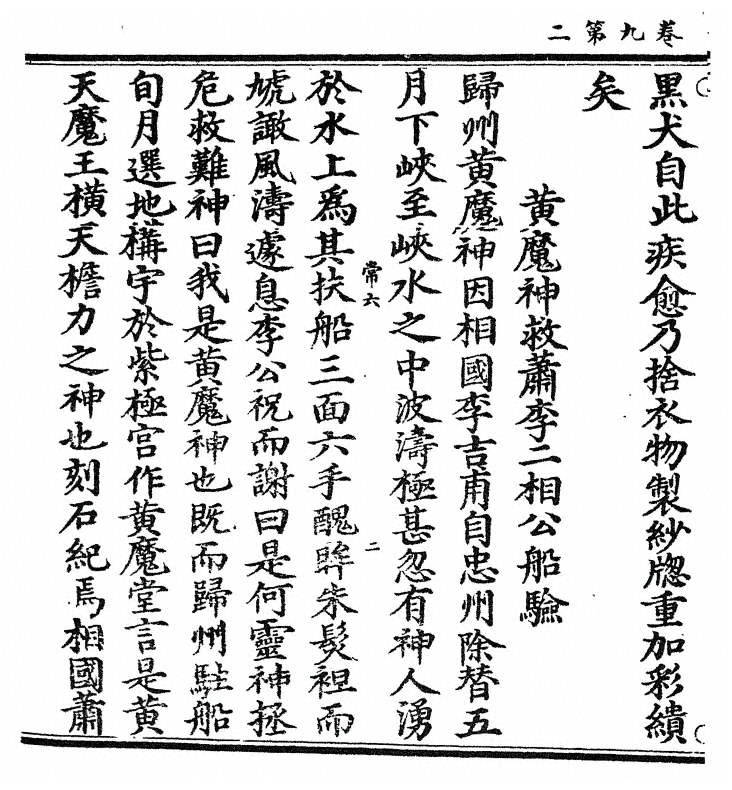 卷九第二
黑犬自此疾愈乃捨衣物製紗牕重加彩繢
矣
黄魔神救蕭李二相公船驗
歸州黄魔神因相國李吉甫自忠州除替五
月下峽至峽水之中波濤極甚忽有神人湧
於水上爲其扶船三面六手醜眸朱髮袒而
虓譀風濤遽息李公祝而謝曰是何靈神拯
危救難神曰我是黄魔神也既而歸州駐船
旬月選地構宇於紫極宫作黄魔堂言是黄
天魔王横天檐力之神也刻石紀焉相國蕭
常六
二